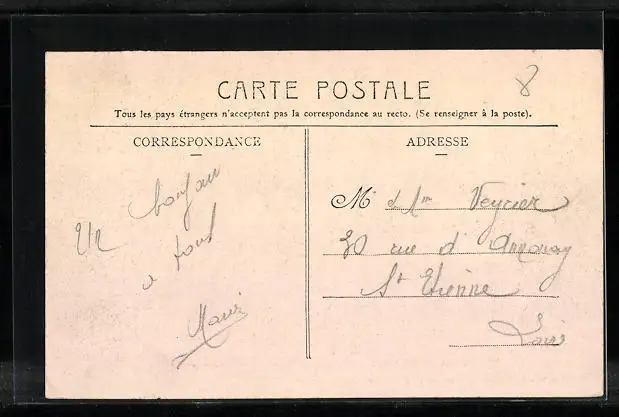 CARTE POSTALE
8
Tous les pays étrangers n'acceptent pas la correspondance au recto. (Se renseigner à la poste).
CORRESPONDANCE
ADRESSE
Un bonjour
a tous
Marie
M. et Mme Veyrier
30 rue d'Annonay
St Etienne
Loire